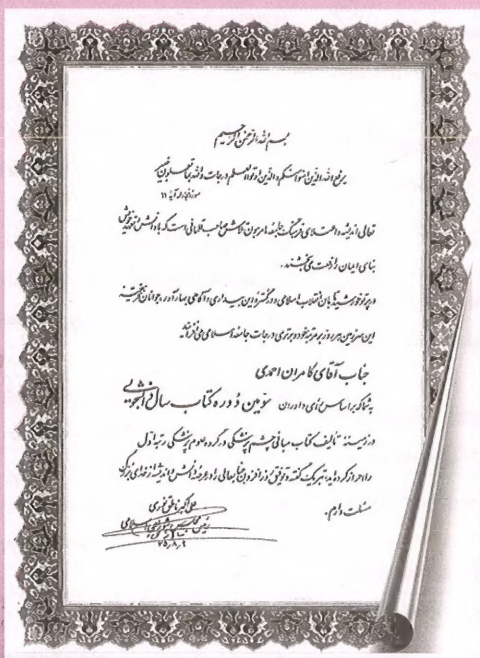 بسم الله الرحمن الرحیم
یرفع الله الذین امنوا منکم و الذین اوتوا العلم درجات و الله بما تعملون خبیر
سوره مجادله آیه ۱۱
تعالی اندیشه و اعتلای فرهنگ جامعه مرهون تلاش صاحب قلمانی است که با دانش و تعهد خویش
بنای ایمان را رفعت می‌بخشند.
در پرتو خورشید تابان انقلاب اسلامی و در گستره این بیداری و آگاهی بهارآور، جوانان فرهیخته
این سرزمین هر روز بر مرتبه خود و برتری درجات جامعه اسلامی می‌افزایند.
جناب آقای کامران احمدی
به شما که بر اساس رأی داوران سومین دوره کتاب سال دانشجویی
در زمینه تألیف کتاب مبانی چشم پزشکی در گروه علوم پزشکی رتبه اول
را احراز کرده‌اید، تبریک گفته و توفیق روزافزون جنابعالی را در عرضه دانش و اندیشه از خدای بزرگ
مسئلت دارم.
علی اکبر ناطق نوری
رئیس مجلس شورای اسلامی
۷۵،۸،۹